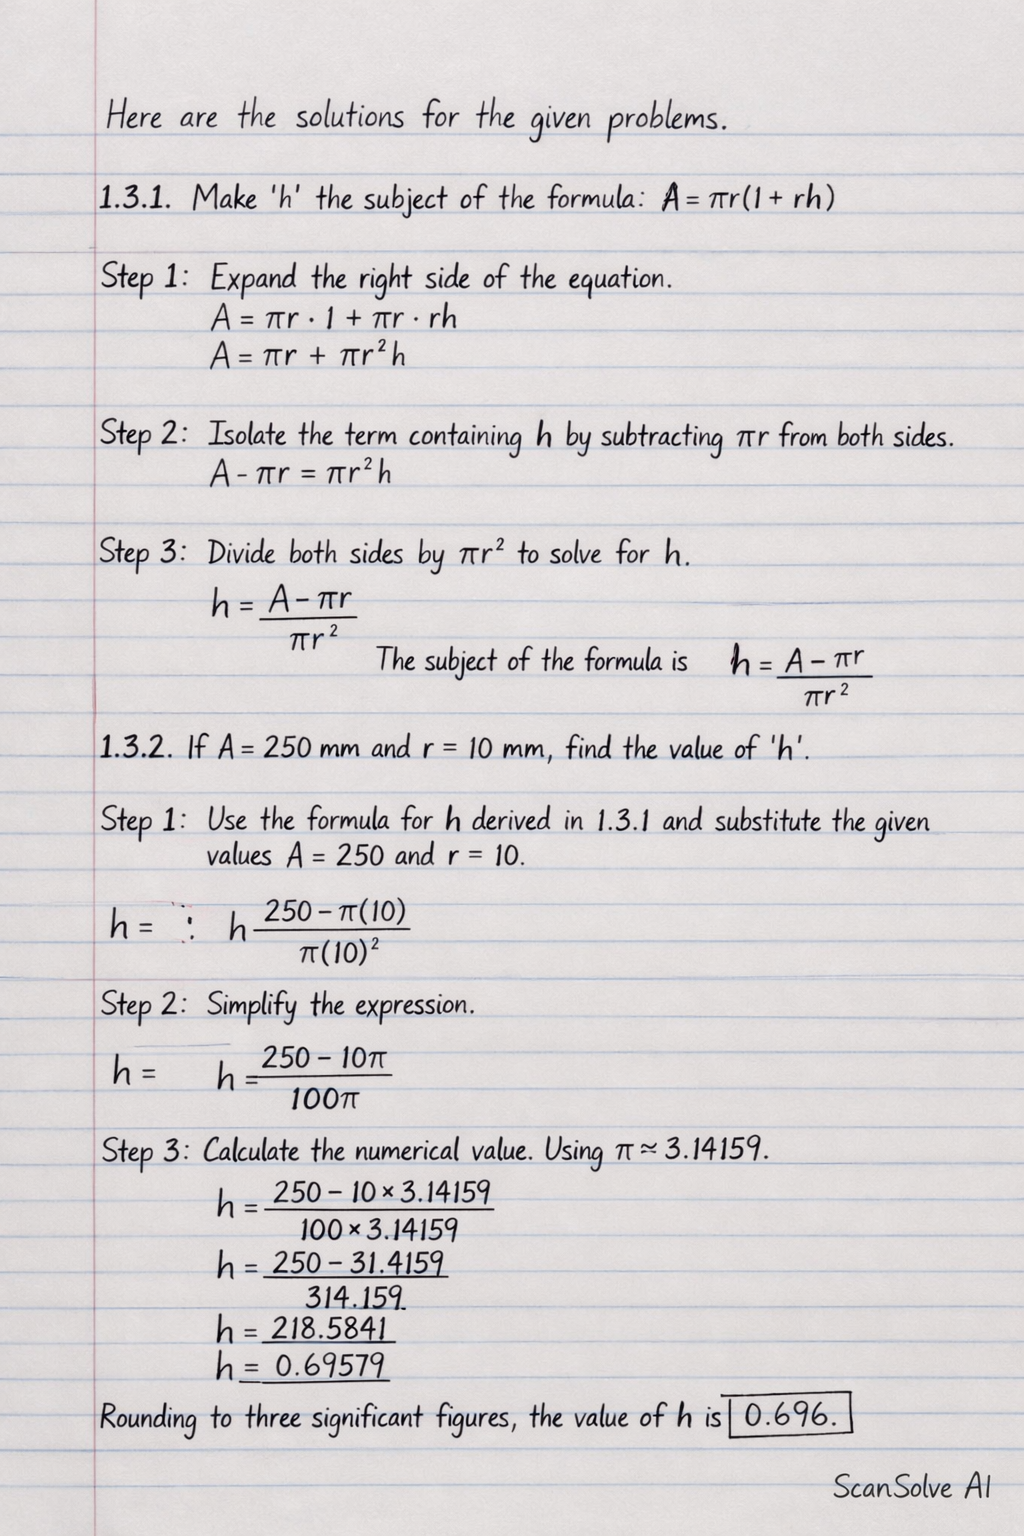 Here are the solutions for the given problems.
1.3.1. Make 'h' the subject of the formula: A = πr(1 + rh)
Step 1: Expand the right side of the equation.
A = πr · 1 + πr · rh
A = πr + πr²h
Step 2: Isolate the term containing h by subtracting πr from both sides.
A - πr = πr²h
Step 3: Divide both sides by πr² to solve for h.
h = A - πr
πr²
The subject of the formula is h = A - πr
πr²
1.3.2. If A = 250 mm and r = 10 mm, find the value of 'h'.
Step 1: Use the formula for h derived in 1.3.1 and substitute the given
values A = 250 and r = 10.
h = : h 250 - π(10)
π(10)²
Step 2: Simplify the expression.
h = h = 250 - 10π
100π
Step 3: Calculate the numerical value. Using π ≈ 3.14159.
h = 250 - 10 × 3.14159
100 × 3.14159
h = 250 - 31.4159
314.159.
h = 218.5841
h = 0.69579
Rounding to three significant figures, the value of h is 0.696.
ScanSolve AI